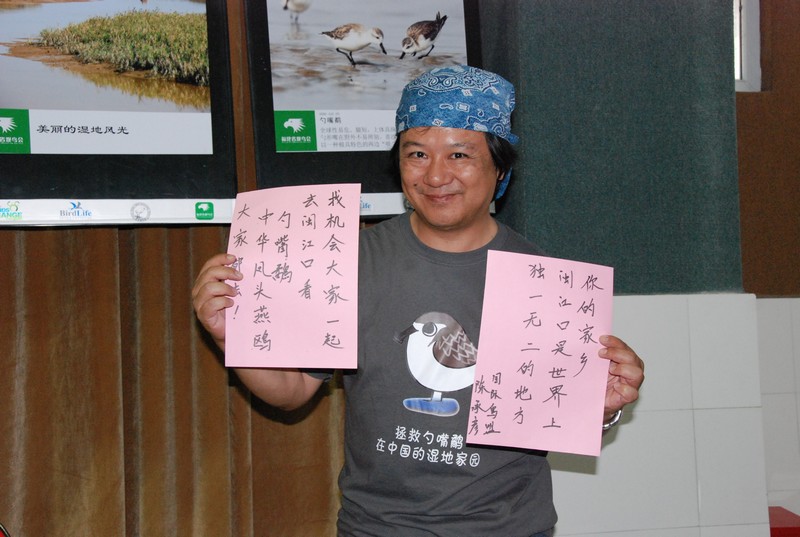 美丽的湿地风光
勺嘴鹬
BirdLife
找机会大家一起
去闽江口看
勺嘴鹬
中华凤头燕鸥
大家都去！
你的家乡
闽江口是世界上
独一无二的地方
国际鸟盟
陈承彦
拯救勺嘴鹬
在中国的湿地家园